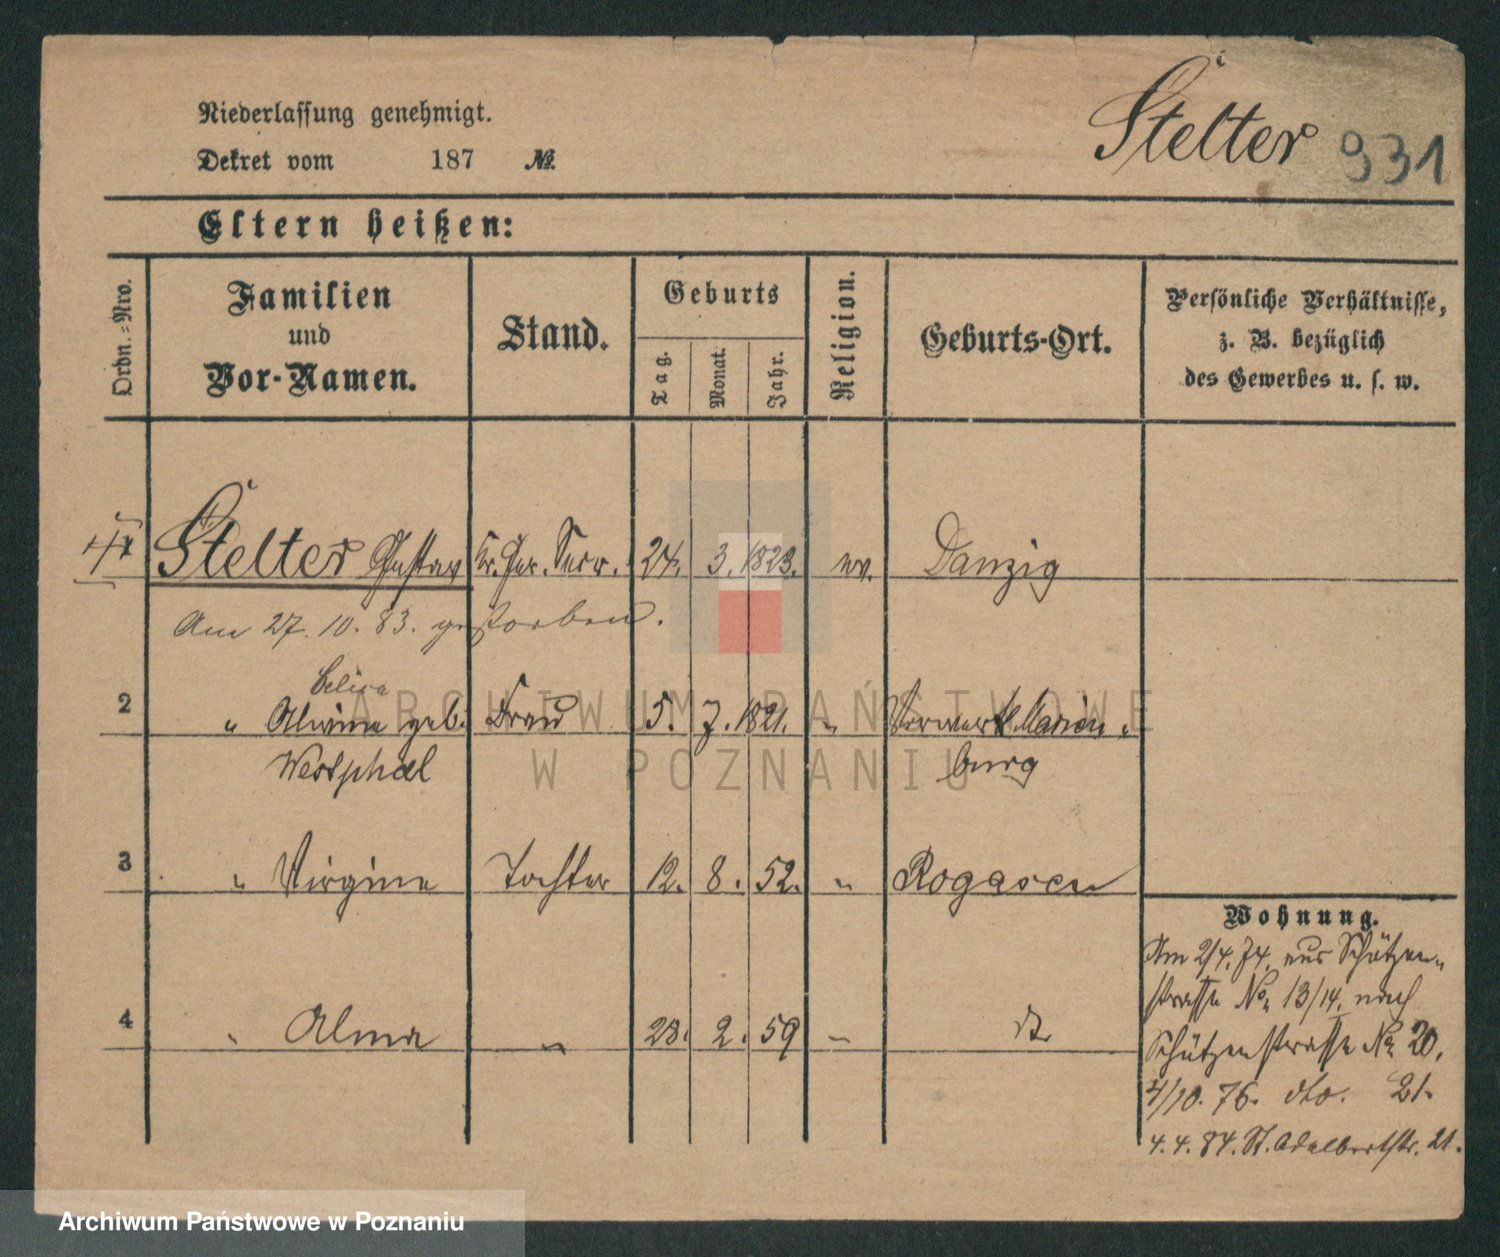 Niederlassung genehmigt.
Stelter 931
Dekret vom 187 №.
Eltern heißen:
Ordn.-Nro.
Familien
und
Vor-Namen.
Stand.
Geburts
Tag.
Monat.
Jahr.
Religion.
Geburts-Ort.
Persönliche Verhältnisse,
z. B. bezüglich
des Gewerbes u. s. w.
1 Stelter Gustav Kr. Ger. Secr. 24. 3. 1823. ev. Danzig
Am 27. 10. 83. gestorben.
2 " Alwine geb. Frau 5. 7. 1821. " Vorwerk Marien-
Westphal burg
3 " Virgine Tochter 12. 8. 52. " Rogasen
4 " Alma " 28. 2. 59 "
Wohnung.
Am 2/4. 74. aus Schützen-
strasse No. 13/14. nach
Schützenstrasse No. 20.
4/10. 76. dto. 21.
4. 4. 84. St. Adalbertstr. 21.
ARCHIWUM PAŃSTWOWE
W POZNANIU
Archiwum Państwowe w Poznaniu